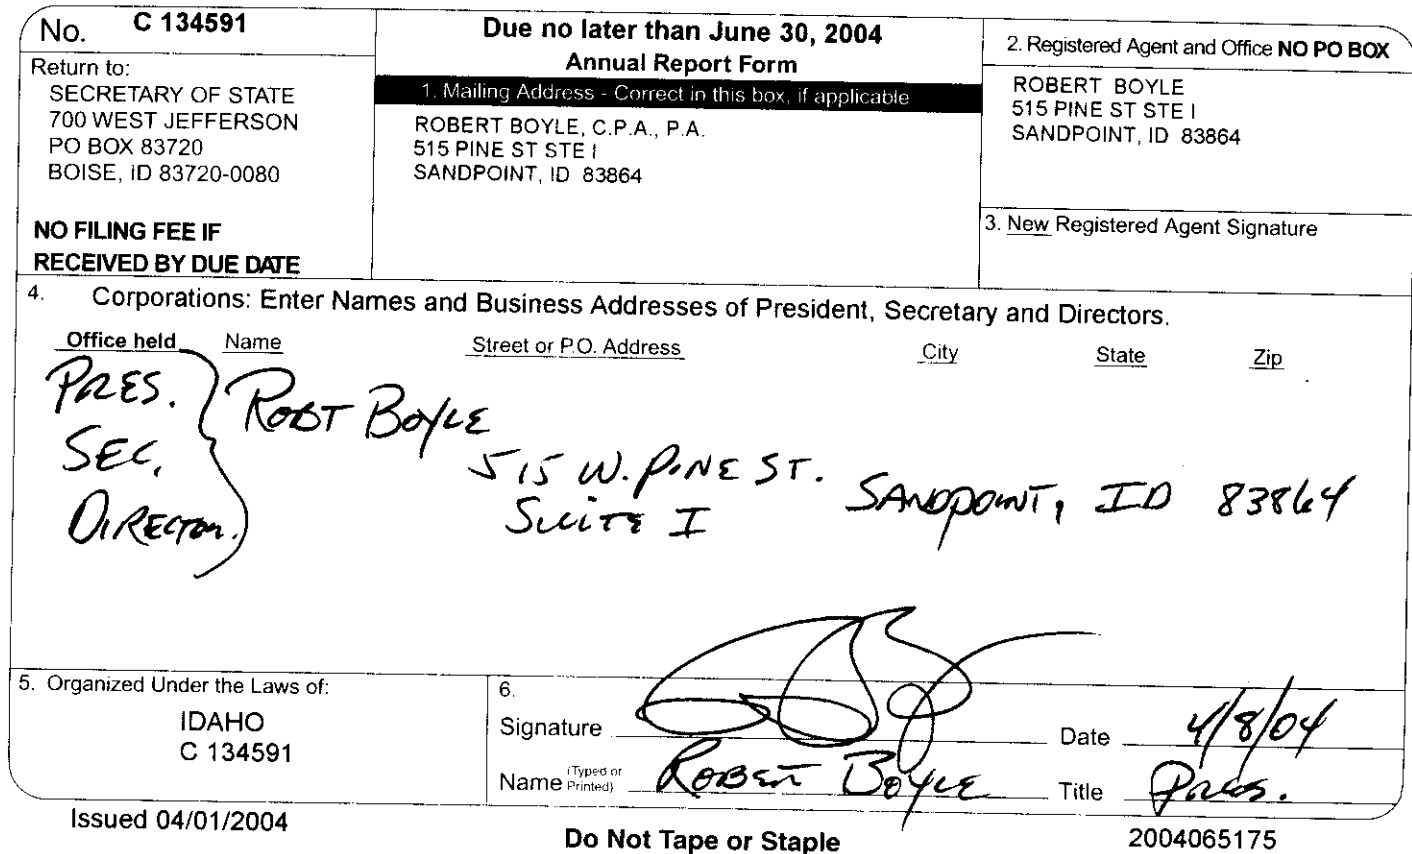 No. C 134591
Return to:
SECRETARY OF STATE
700 WEST JEFFERSON
PO BOX 83720
BOISE, ID 83720-0080
NO FILING FEE IF
RECEIVED BY DUE DATE
Due no later than June 30, 2004
Annual Report Form
1. Mailing Address - Correct in this box, if applicable
ROBERT BOYLE, C.P.A., P.A.
515 PINE ST STE I
SANDPOINT, ID 83864
2. Registered Agent and Office NO PO BOX
ROBERT BOYLE
515 PINE ST STE I
SANDPOINT, ID 83864
3. New Registered Agent Signature
4. Corporations: Enter Names and Business Addresses of President, Secretary and Directors.
Office held Name Street or P.O. Address City State Zip
PRES. ROBT BOYLE
SEC. 515 W. PINE ST. SANDPOINT, ID 83864
DIRECTOR. SUITE I
5. Organized Under the Laws of:
IDAHO
C 134591
6.
Signature Date 4/8/04
Name (Typed or Printed) ROBERT BOYLE Title PRES.
Issued 04/01/2004 Do Not Tape or Staple 2004065175